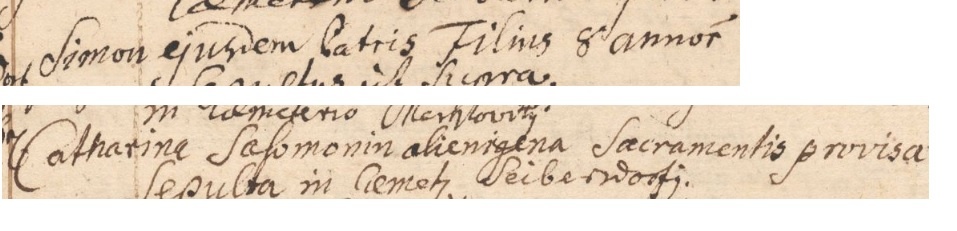 Simon ejusdem Patris Filius 8 annor
Sepultus ut Supra.
in Caemeterio
Catharina Salomonin alienigena Sacramentis provisa
sepulta in Caemet Seibersdorfij.